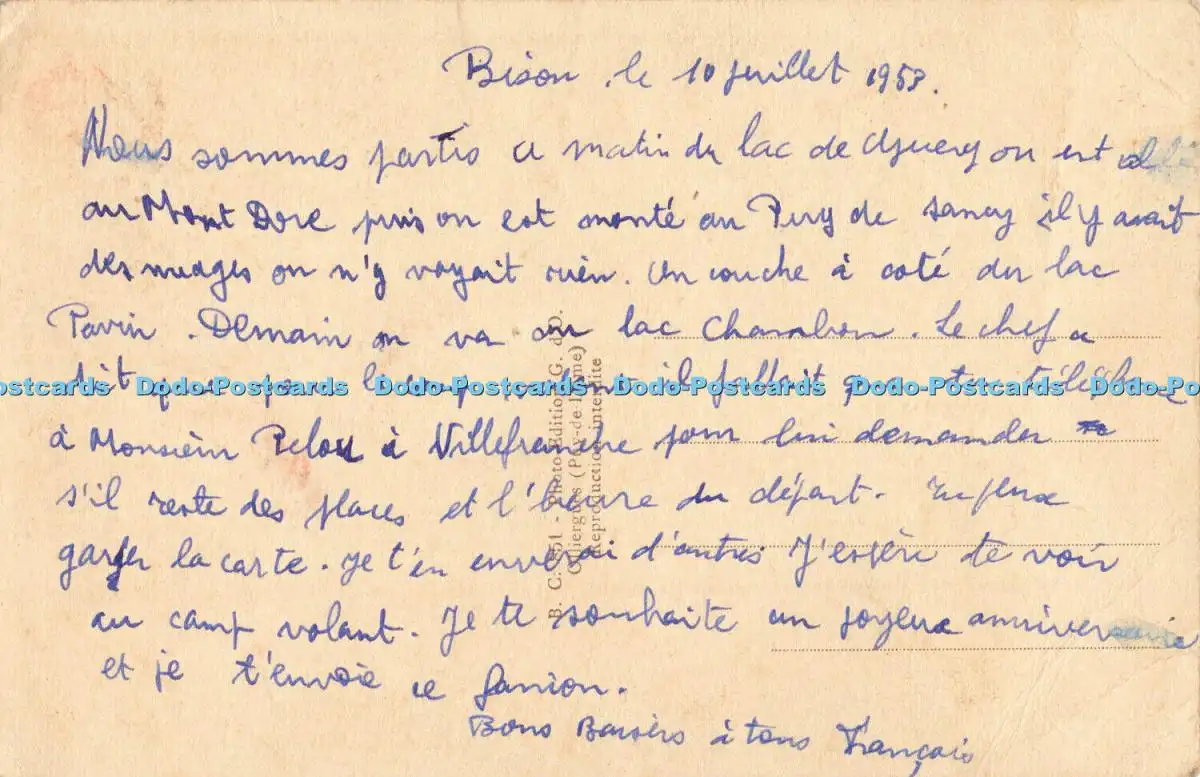 Bison, le 10 juillet 1953.
Nous sommes partis ce matin du lac de Guery on est
au Mont Dore puis on est monté au Puy de Sancy il y avait
des nuages on n'y voyait rien. On couche à coté du lac
Pavin. Demain on va au lac Chambon. Le chef a
dit que pour le camp volant il fallait que tu téléphones
à Monsieur Pelou à Villefranche pour lui demander
s'il reste des places et l'heure du départ. Tu peux
garder la carte. Je t'en enverrai d'autres J'espère te voir
au camp volant. Je te souhaite un joyeux anniversaire
et je t'envoie ce fanion.
Bons Baisers à tous François
B. C. - Photo-Edition G. d'O.
(Puy-de-Dôme)
Reproduction interdite
Dodo-Postcards Dodo-Postcards Dodo-Postcards Dodo-Postcards Dodo-Postcards